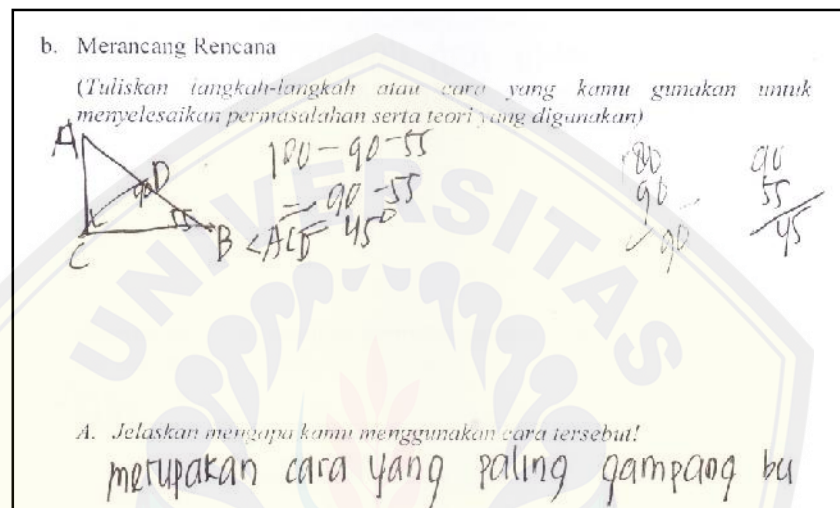 b. Merancang Rencana
(Tuliskan langkah-langkah atau cara yang kamu gunakan untuk
menyelesaikan permasalahan serta teori yang digunakan)
A
D
90
55
C
B
180 - 90 - 55
= 90 - 55
<ACD 45°
180
90 -
90
90
55
45
UNIVERSITAS
A. Jelaskan mengapa kamu menggunakan cara tersebut!
merupakan cara yang paling gampang bu